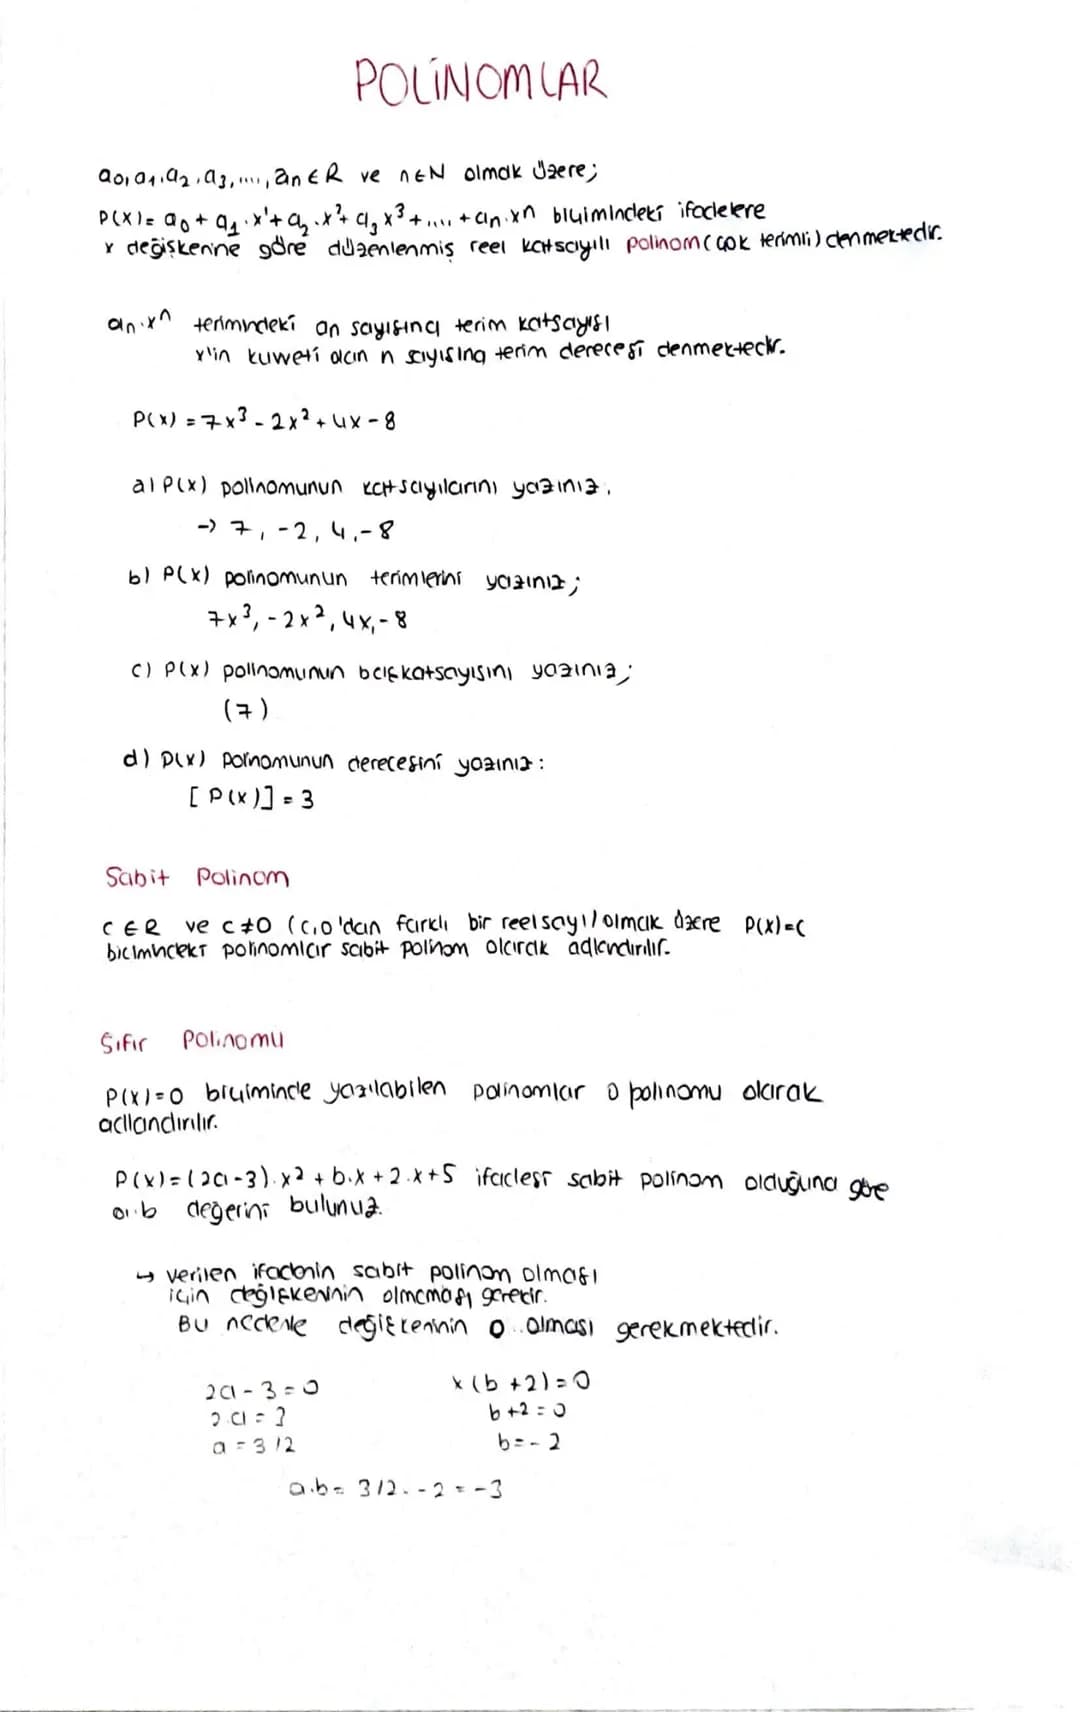 POLİNOMLAR
a0, a1, a2, a3, ...., an ∈ R ve n ∈ N olmak üzere;
P(x) = a₀ + a₁.x¹ + a₂.x² + a₃x³ + .... + an.xⁿ biçimindeki ifadelere
x değişkenine göre düzenlenmiş reel katsayılı polinom (çok terimli) denmektedir.
an.xⁿ terimindeki an sayısına terim katsayısı
x'in kuvveti olan n sayısına terim derecesi denmektedir.
P(x) = 7x³ - 2x² + 4x - 8
a) P(x) polinomunun katsayılarını yazınız.
-> 7, -2, 4, -8
b) P(x) polinomunun terimlerini yazınız;
7x³, -2x², 4x, -8
c) P(x) polinomunun başkatsayısını yazınız;
(7)
d) P(x) polinomunun derecesini yazınız:
[P(x)] = 3
Sabit Polinom
c ∈ R ve c ≠ 0 (c, 0'dan farklı bir reel sayı) olmak üzere P(x)=c
biçimindeki polinomlar sabit polinom olarak adlandırılır.
Sıfır Polinomu
P(x)=0 biçiminde yazılabilen polinomlar 0 polinomu olarak
adlandırılır.
P(x) = (2a-3).x² + b.x + 2.x + 5 ifadesi sabit polinom olduğuna göre
a.b değerini bulunuz.
↳ verilen ifadenin sabit polinom olması
için değişkeninin olmaması gerekir.
Bu nedenle değişkeninin 0 olması gerekmektedir.
2a - 3 = 0 x(b+2) = 0
2.a = 3 b+2 = 0
a = 3/2 b = -2
a.b = 3/2 . -2 = -3